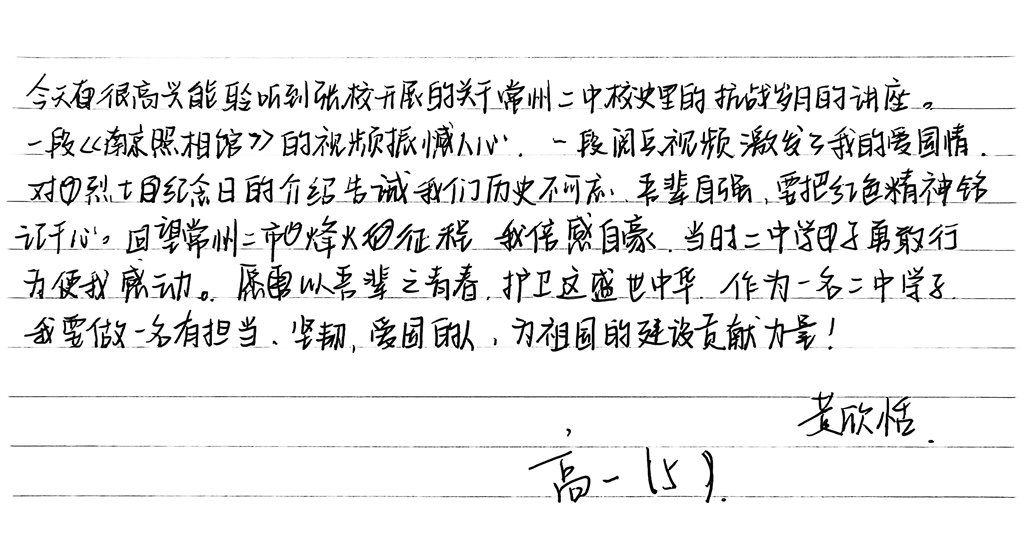 今天有很高兴能够听到张校开展的关于常州二中校史里的抗战岁月的讲座。
一段《南京照相馆》的视频振憾人心，一段阅兵视频激发了我的爱国情，
对烈士纪念日的介绍告诫我们历史不可忘，吾辈自强，要把红色精神铭
记于心。回望常州二中的烽火的征程，我倍感自豪，当时二中学子勇敢行
为使我感动。愿以吾辈之青春，护卫这盛世中华，作为一名二中学子，
我要做一名有担当、坚韧，爱国的人，为祖国的建设贡献力量！
黄欣恬.
高一（5）.